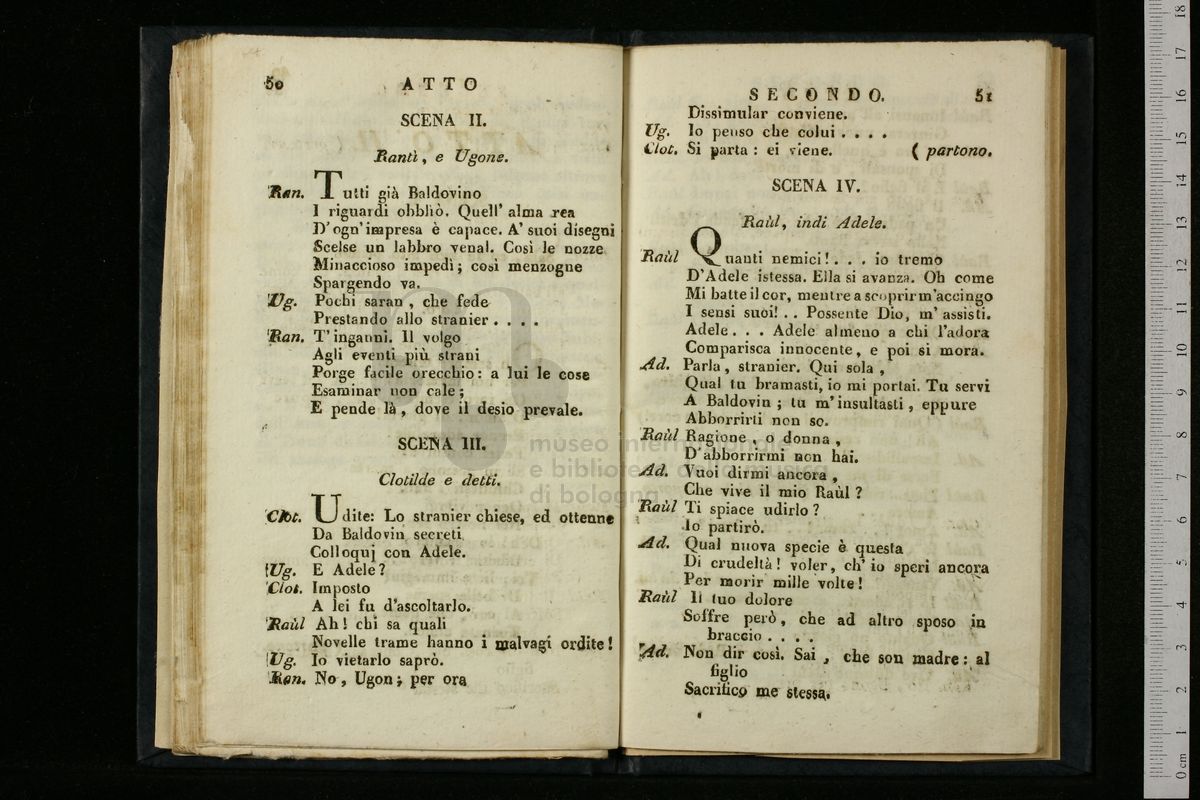 50 ATTO
SCENA II.
Rantì, e Ugone.
Ran. Tutti già Baldovino
I riguardi obbliò. Quell' alma rea
D' ogn' impresa è capace. A' suoi disegni
Scelse un labbro venal. Così le nozze
Minaccioso impedì; così menzogne
Spargendo va.
Ug. Pochi saran, che fede
Prestando allo stranier . . . .
Ran. T' inganni. Il volgo
Agli eventi più strani
Porge facile orecchio: a lui le cose
Esaminar non cale;
E pende là, dove il desio prevale.
SCENA III.
Clotilde e detti.
Clot. Udite: Lo stranier chiese, ed ottenne
Da Baldovin secreti
Colloquj con Adele.
Ug. E Adele?
Clot. Imposto
A lei fu d'ascoltarlo.
Raùl Ah! chi sa quali
Novelle trame hanno i malvagi ordite!
Ug. Io vietarlo saprò.
Ran. No, Ugon; per ora
SECONDO. 51
Dissimular conviene.
Ug. Io penso che colui . . . .
Clot. Si parta: ei viene. ( partono.
SCENA IV.
Raùl, indi Adele.
Raùl Quanti nemici! . . . io tremo
D'Adele istessa. Ella si avanza. Oh come
Mi batte il cor, mentre a scoprir m'accingo
I sensi suoi! . . Possente Dio, m' assisti.
Adele . . . Adele almeno a chi l'adora
Comparisca innocente, e poi si mora.
Ad. Parla, stranier. Qui sola,
Qual tu bramasti, io mi portai. Tu servi
A Baldovin; tu m'insultasti, eppure
Abborrirti non so.
Raùl Ragione, o donna,
D'abborrirmi non hai.
Ad. Vuoi dirmi ancora,
Che vive il mio Raùl?
Raùl Ti spiace udirlo?
Io partirò.
Ad. Qual nuova specie è questa
Di crudeltà! voler, ch' io speri ancora
Per morir mille volte!
Raùl Il tuo dolore
Soffre però, che ad altro sposo in
braccio . . . .
Ad. Non dir così. Sai, che son madre: al
figlio
Sacrifico me stessa.
museo internazionale
e biblioteca della musica
di bologna
0 cm 1 2 3 4 5 6 7 8 9 10 11 12 13 14 15 16 17 18